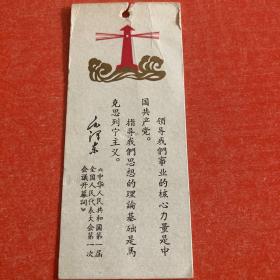 领导我們事业的核心力量是中
国共产党。
指导我們思想的理論基础是馬
克思列宁主义。
毛泽东
《中华人民共和国第一届
全国人民代表大会第一次
会议开幕詞》